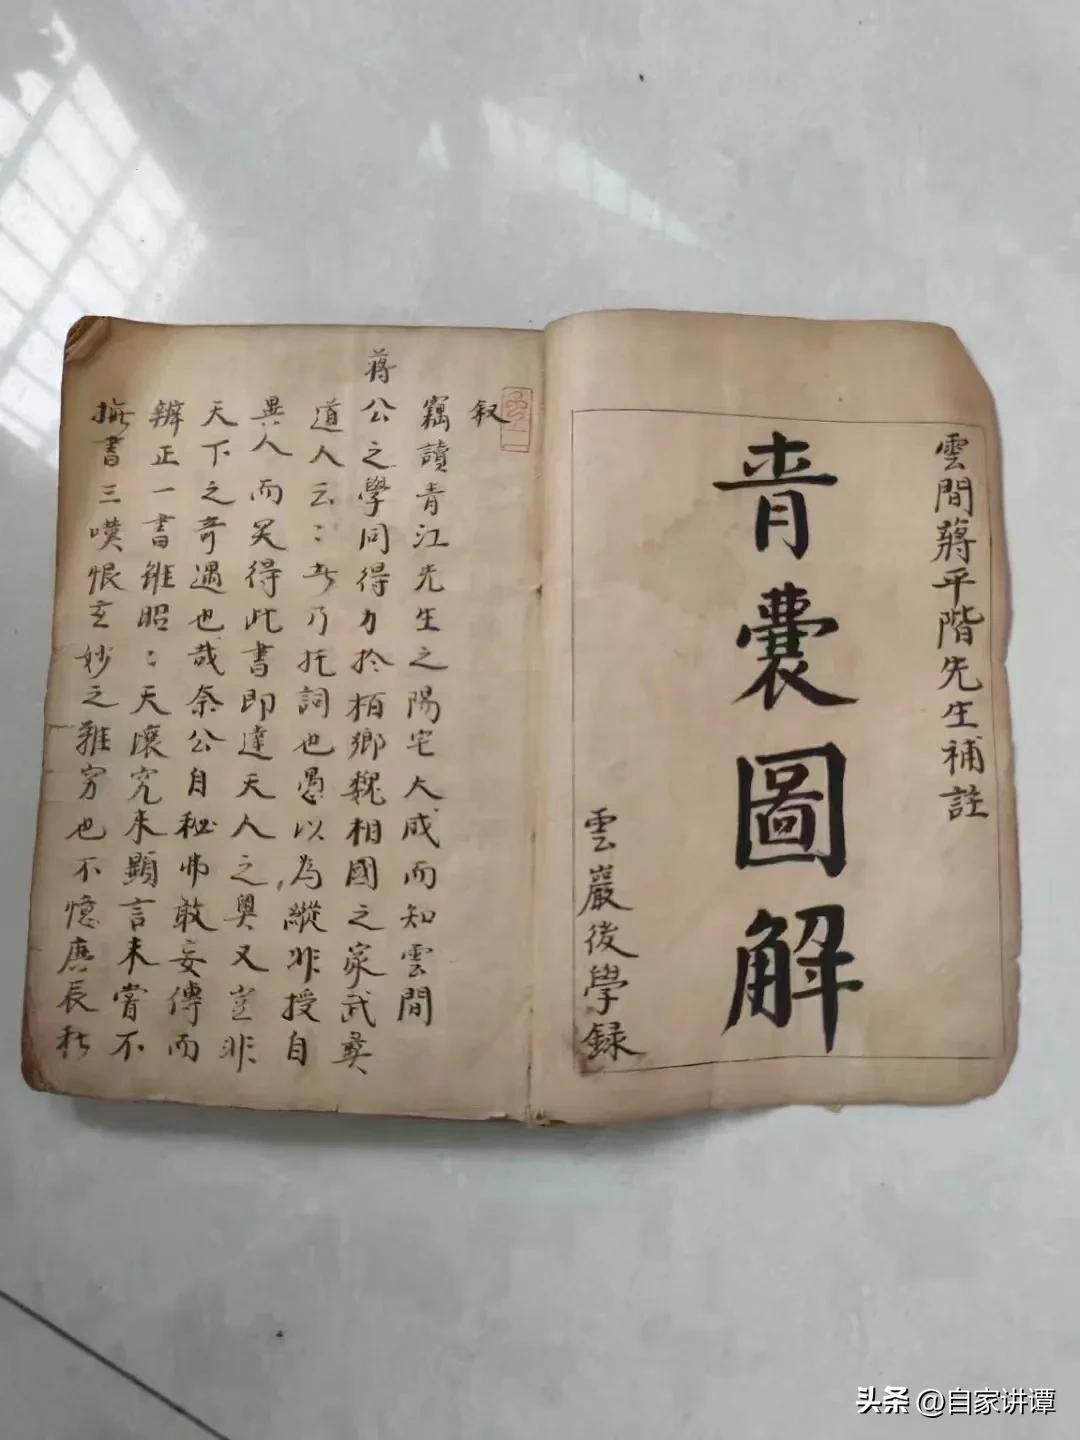 雲間蔣平階先生補註
青囊圖解
雲巖後學録
叙
竊讀青江先生之陽宅大成而知雲間
蔣公之學同得力於栢鄉魏相國之家武彛
道人云〻乃托詞也愚以為縱非授自
異人而得此書即達天人之奥又豈非
天下之奇遇也哉奈公自秘弗敢妄傳而
辨正一書雖昭〻天壤究未顯言未嘗不
撫書三嘆恨玄妙之難窮也不憶唐辰秋
头条 @自家讲谭